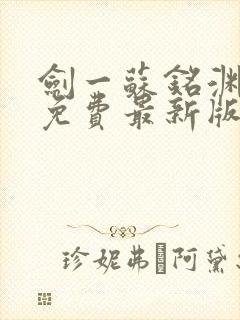 劍一蘇銘淵
免費最新版
珍妮弗·阿黛